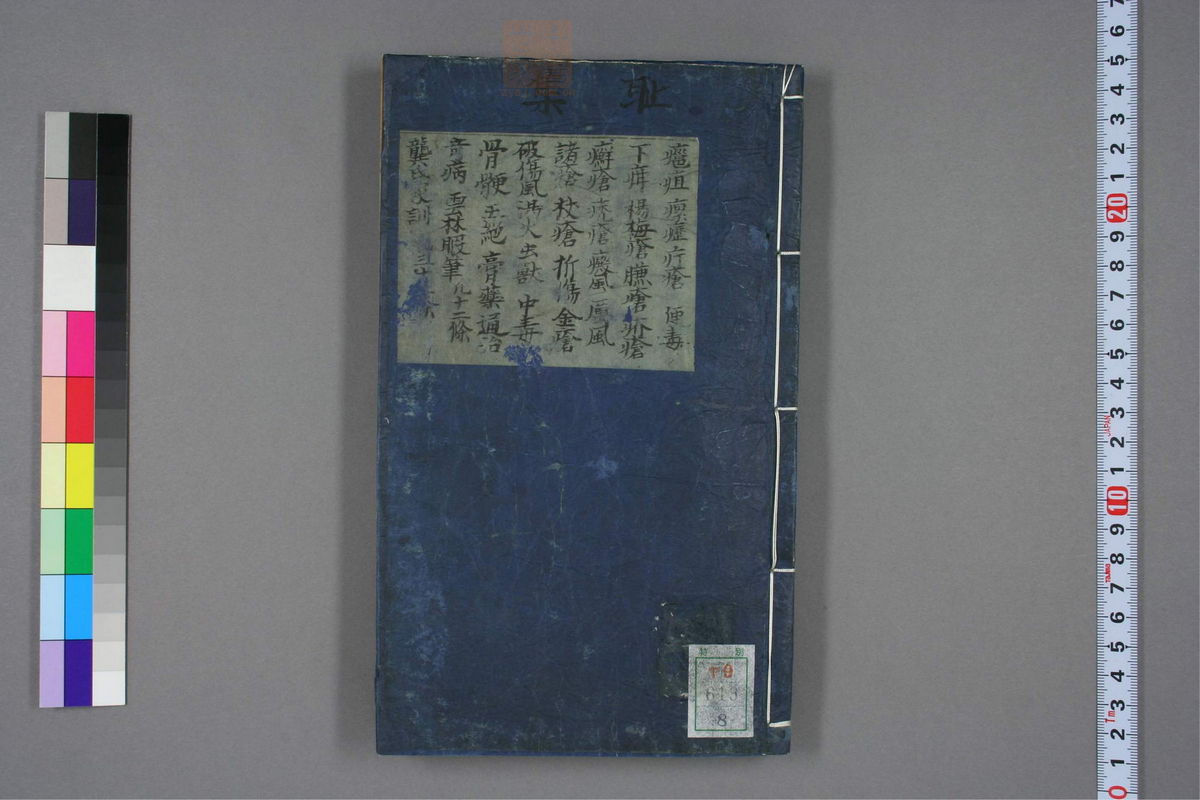 集 耻
癰疽 瘰癧 疔瘡 便毒
下疳 楊梅瘡 臁瘡 疥瘡
癬瘡 禿瘡 癜風 癘風
諸瘡 杖瘡 折傷 金瘡
破傷風 湯火 虫獣 中毒
骨鯁 五絶 膏藥 通治
奇病 雲林暇筆 凡十二條
龔氏家訓 三十
特別
ヤ9
613
8
JAPAN
7
6
5
4
3
2
1
20
9
8
7
6
5
4
3
2
1
10
9
8
7
6
5
4
3
2
1
0